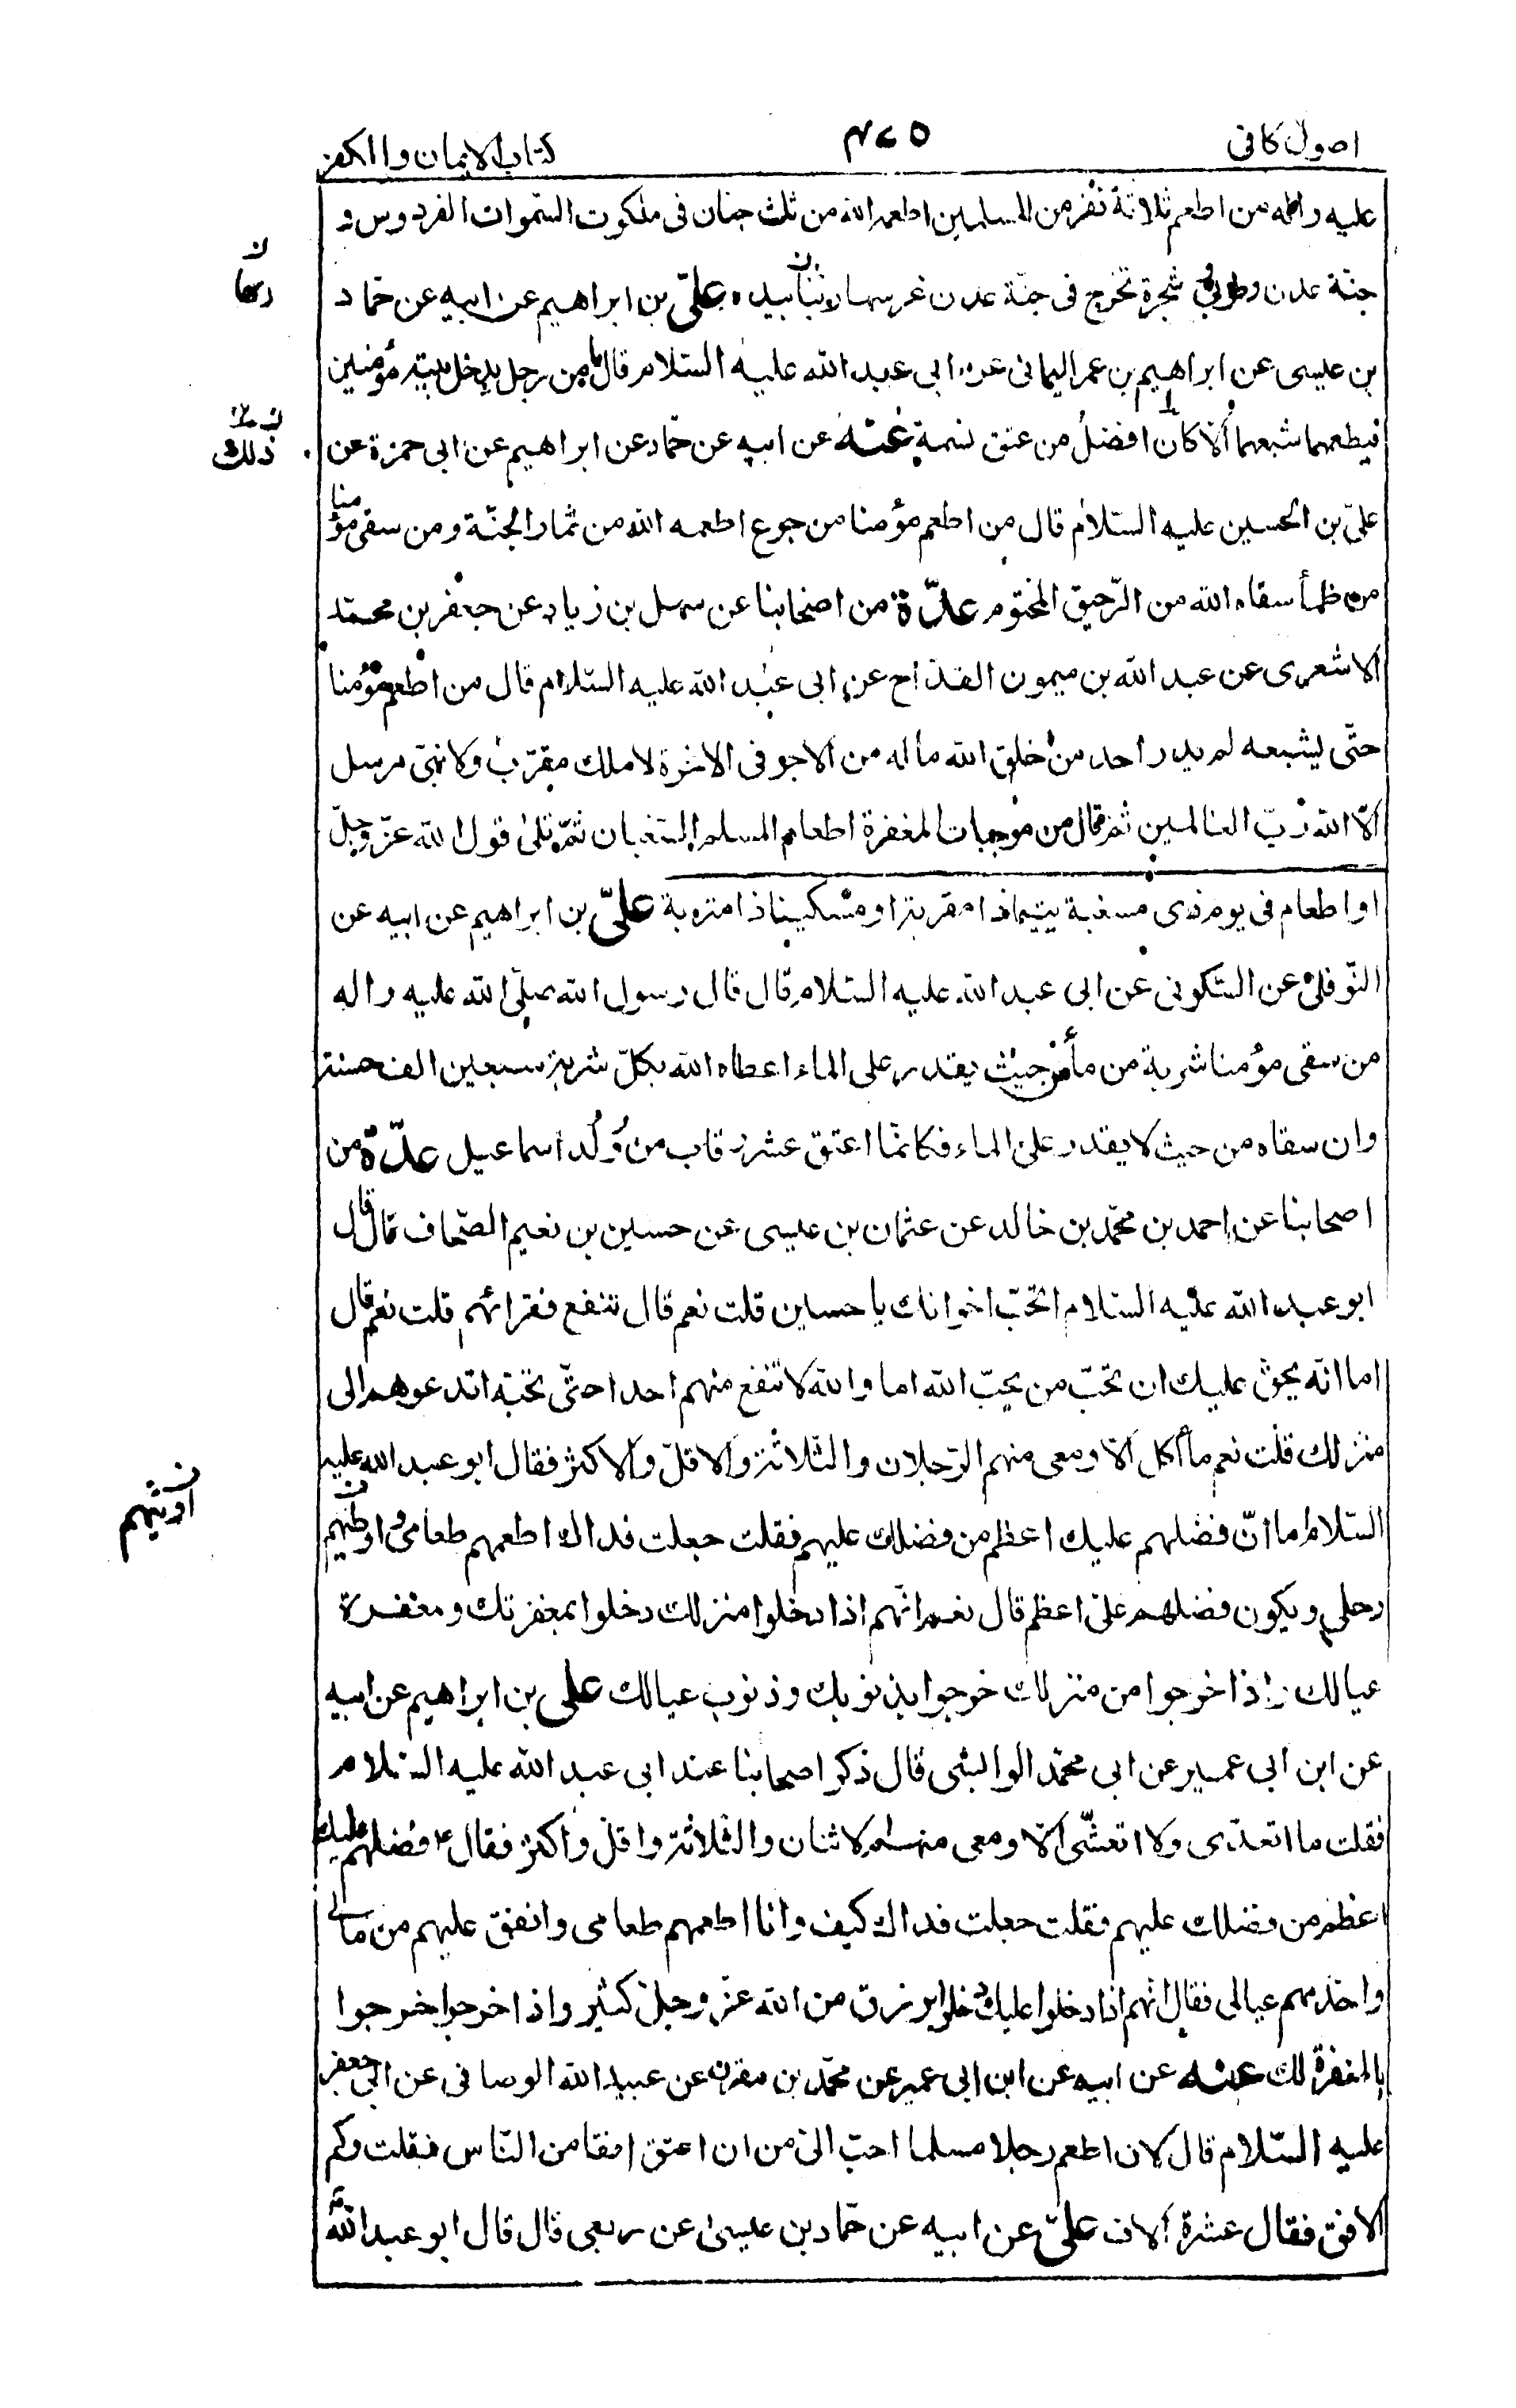 اصول كافى
۴۷۵
كتاب الايمان والكفر
عليه واله من اطعم ثلاثة نفر من المسلمين اطعمه الله من ثلث جنان فى ملكوت السّموات الفردوس و
جنّة عدن وطوبى شجرة تخرج فى جنّة عدن غرسها ربّنا بيده علىّ بن ابراهيم عن ابيه عن حمّاد
ن
ربها
بن عيسى عن ابراهيم بن عمر اليمانى عن ابى عبد الله عليه السّلام قال ما من رجل يدخل بيته مؤمنين
فيطعمهما شبعهما الّا كان افضل من عتق نسمة عنه عن ابيه عن حمّاد عن ابراهيم عن ابى حمزة عن
ذلك
علىّ بن الحسين عليه السّلام قال من اطعم مؤمنا من جوع اطعمه الله من ثمار الجنّة ومن سقى مؤمنا
من ظمأ سقاه الله من الرّحيق المختوم عدّة من اصحابنا عن سهل بن زياد عن جعفر بن محمّد
الاشعرى عن عبد الله بن ميمون القدّاح عن ابى عبد الله عليه السّلام قال من اطعم مؤمنا
حتّى يشبعه لم يدر احد من خلق الله ماله من الاجر فى الاخرة لا ملك مقرّب ولا نبىّ مرسل
الّا الله ربّ العالمين ثم قال من موجبات المغفرة اطعام المسلم السّغبان ثمّ تلى قول الله عزّ وجلّ
او اطعام فى يوم ذى مسغبة يتيما ذا مقربة او مسكينا ذا متربة علىّ بن ابراهيم عن ابيه عن
النّوفلى عن السّكونى عن ابى عبد الله عليه السّلام قال قال رسول الله صلّى الله عليه واله
من سقى مؤمنا شربة من مأ من حيث يقدر على الماء اعطاه الله بكلّ شربة سبعين الف حسنة
وان سقاه من حيث لا يقدر على الماء فكانّما اعتق عشر رقاب من وُلد اسماعيل عدّة من
اصحابنا عن احمد بن محمّد بن خالد عن عثمان بن عيسى عن حسين بن نعيم الصّحاف قال قال
ابو عبد الله عليه السّلام اتحبّ اخوانك يا حسين قلت نعم قال تنفع فقرائهم قلت نعم قال
اما انّه يحقّ عليك ان تحبّ من يحبّ الله اما والله لا تنفع منهم احدا حتّى تحبّه اتدعوهم الى
منزلك قلت نعم ما أكل الّا ومعى منهم الرّجلان والثّلاثة والاقلّ والاكثر فقال ابو عبد الله عليه
السّلام اما انّ فضلهم عليك اعظم من فضلك عليهم فقلت جعلت فداك اطعمهم طعامى واوطئهم
ن
رحلى ويكون فضلهم علىّ اعظم قال نعم انّهم اذا دخلوا منزلك دخلوا بمغفرتك ومغفرة
عيالك واذا خرجوا من منزلك خرجوا بذنوبك وذنوب عيالك على بن ابراهيم عن ابيه
عن ابن ابى عمير عن ابى محمّد الوابشى قال ذكر اصحابنا عند ابى عبد الله عليه السّلام
فقلت ما اتغدّى ولا اتعشّى الّا ومعى منهم الاثنان والثّلاثة واقلّ واكثر فقال ع فضلهم عليك
اعظم من فضلك عليهم فقلت جعلت فداك كيف وانا اطعمهم طعامى وانفق عليهم من مالى
واخدمهم عيالى فقال انّهم اذا دخلوا عليك دخلوا برزق من الله عزّ وجلّ كثير واذا خرجوا خرجوا
بالمغفرة لك عنه عن ابيه عن ابن ابى عمير عن محمّد بن مقرن عن عبيد الله الوصافى عن ابى جعفر
عليه السّلام قال لان اطعم رجلا مسلما احبّ الىّ من ان اعتق افقا من النّاس فقلت وكم
الافق فقال عشرة الاف علىّ عن ابيه عن حمّاد بن عيسى عن ربعى قال قال ابو عبد الله ع